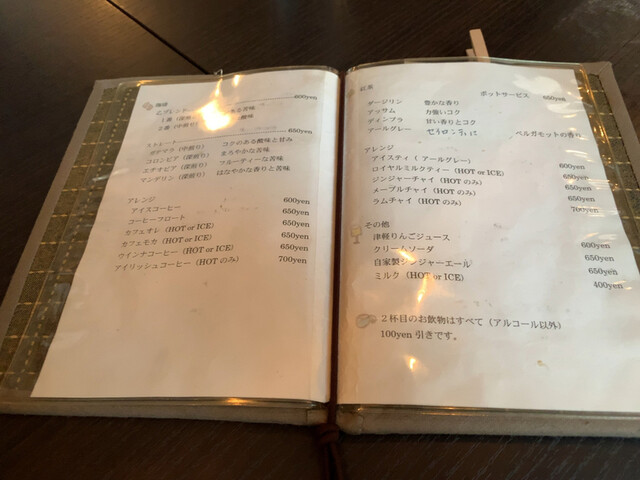 珈琲 600yen
ブレンド
1番（深煎り） ある苦味
2番（中煎り） 酸味
ストレート 650yen
グテマラ（中煎り） コクのある酸味と甘み
コロンビア（深煎り） まろやかな苦味
エチオピア（深煎り） フルーティーな苦味
マンデリン（深煎り） はなやかな香りと苦味
アレンジ
アイスコーヒー 600yen
コーヒーフロート 650yen
カフェオレ（HOT or ICE） 650yen
カフェモカ（HOT or ICE） 650yen
ウインナコーヒー（HOT or ICE） 650yen
アイリッシュコーヒー（HOT のみ） 700yen
紅茶 ポットサービス 650yen
ダージリン 豊かな香り
アッサム 力強いコク
ディンブラ 甘い香りとコク
アールグレー ベルガモットの香り
アレンジ
アイスティ（アールグレー） 600yen
ロイヤルミルクティー（HOT or ICE） 650yen
ジンジャーチャイ（HOT のみ） 650yen
メープルチャイ（HOT のみ） 650yen
ラムチャイ（HOT のみ） 700yen
その他
津軽りんごジュース 600yen
クリームソーダ 650yen
自家製ジンジャーエール 650yen
ミルク（HOT or ICE） 400yen
2杯目のお飲物はすべて（アルコール以外）
100yen 引きです。